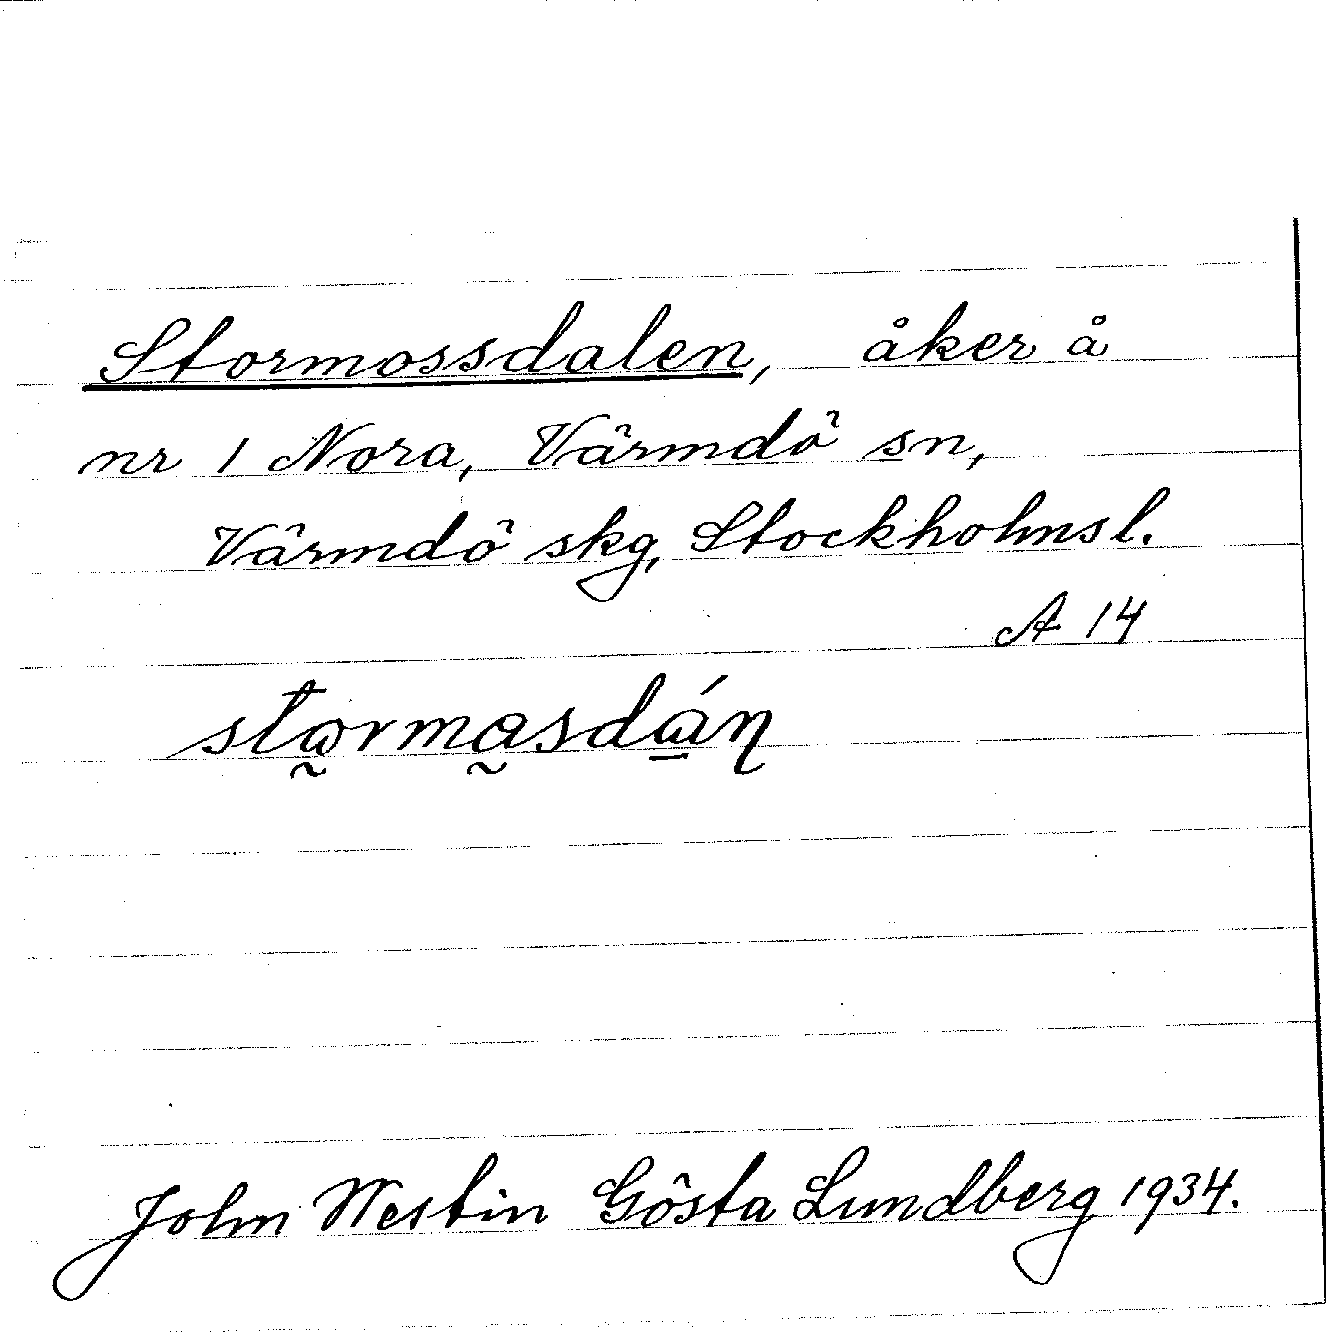 Stormossdalen, åker å
nr 1 Nora, Värmdö sn,
Värmdö skg, Stockholmsl.
A 14
John Westin Gösta Lundberg 1934.